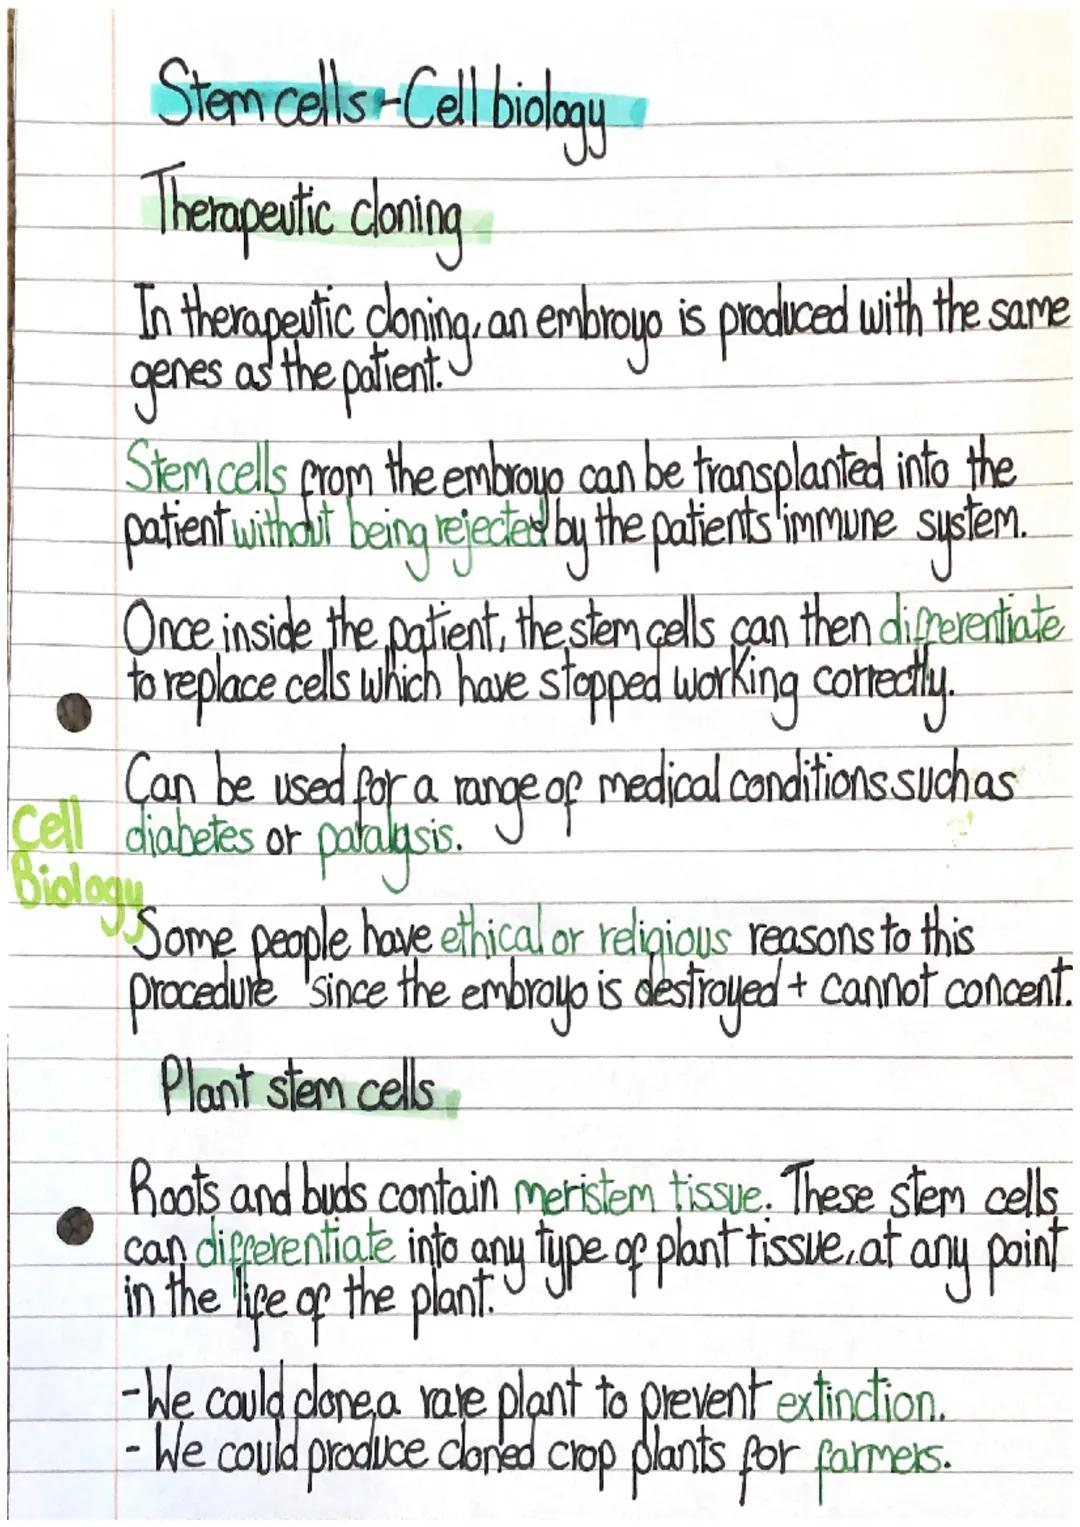 Stem cells - Cell biology
Therapeutic cloning
In therapeutic cloning, an embroyo is produced with the same
genes as the patient.
Stem cells from the embroyo can be transplanted into the
patient without being rejected by the patients' immune system.
Once inside the patient, the stem cells can then differentiate
to replace cells which have stopped working correctly.
Can be used for a range of medical conditions such as
diabetes or paralysis.
Cell
Biology
Some people have ethical or religious reasons to this
procedure since the embroyo is destroyed + cannot concent.
Plant stem cells
Roots and buds contain meristem tissue. These stem cells
can differentiate into any type of plant tissue, at any point
in the life of the plant.
- We could clone a rare plant to prevent extinction.
- We could produce cloned crop plants for farmers.